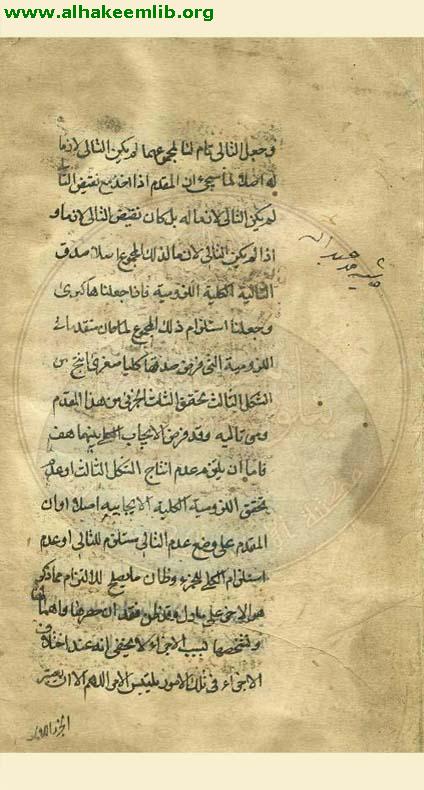 www.alhakeemlib.org
وجعل التالى تام لنا لمجموعهما لم يكن التالى لازما
له اصلا لما سيجئ ان المقدم اذا اخذ مع نقيض التا
لم يكن التالى لازما له بل كان نقيض التالى لازما و
اذا لم يكن التالى لازما لذلك المجموع اصلا صدق
السالبة الكلية اللزومية فاذا جعلناها كبرى
وجعلنا استلزام ذلك المجموع
اللزومية التى فرض صدقها كليا صغرى انتج من
الشكل الثالث تحقق السلب الجزئى من هذا المقدم
وبين تاليه وقد فرض الايجاب الكلى بينهما هف
فاما ان يلتزم عدم انتاج الشكل الثالث او عدم
تحقق اللزومية الكلية الايجابية اصلا او ان
المقدم على وضع عدم التالى مستلزم للتالى او عدم
استلزام الكل للجزء وظان ما يصلح للالتزام مما ذكر
هو الاخير على
بسبب الاجزاء لا يخفى انه عند اختلاف
الاجزاء فى تلك الامور يلتبس الامر اللهم الا ان يعتبر